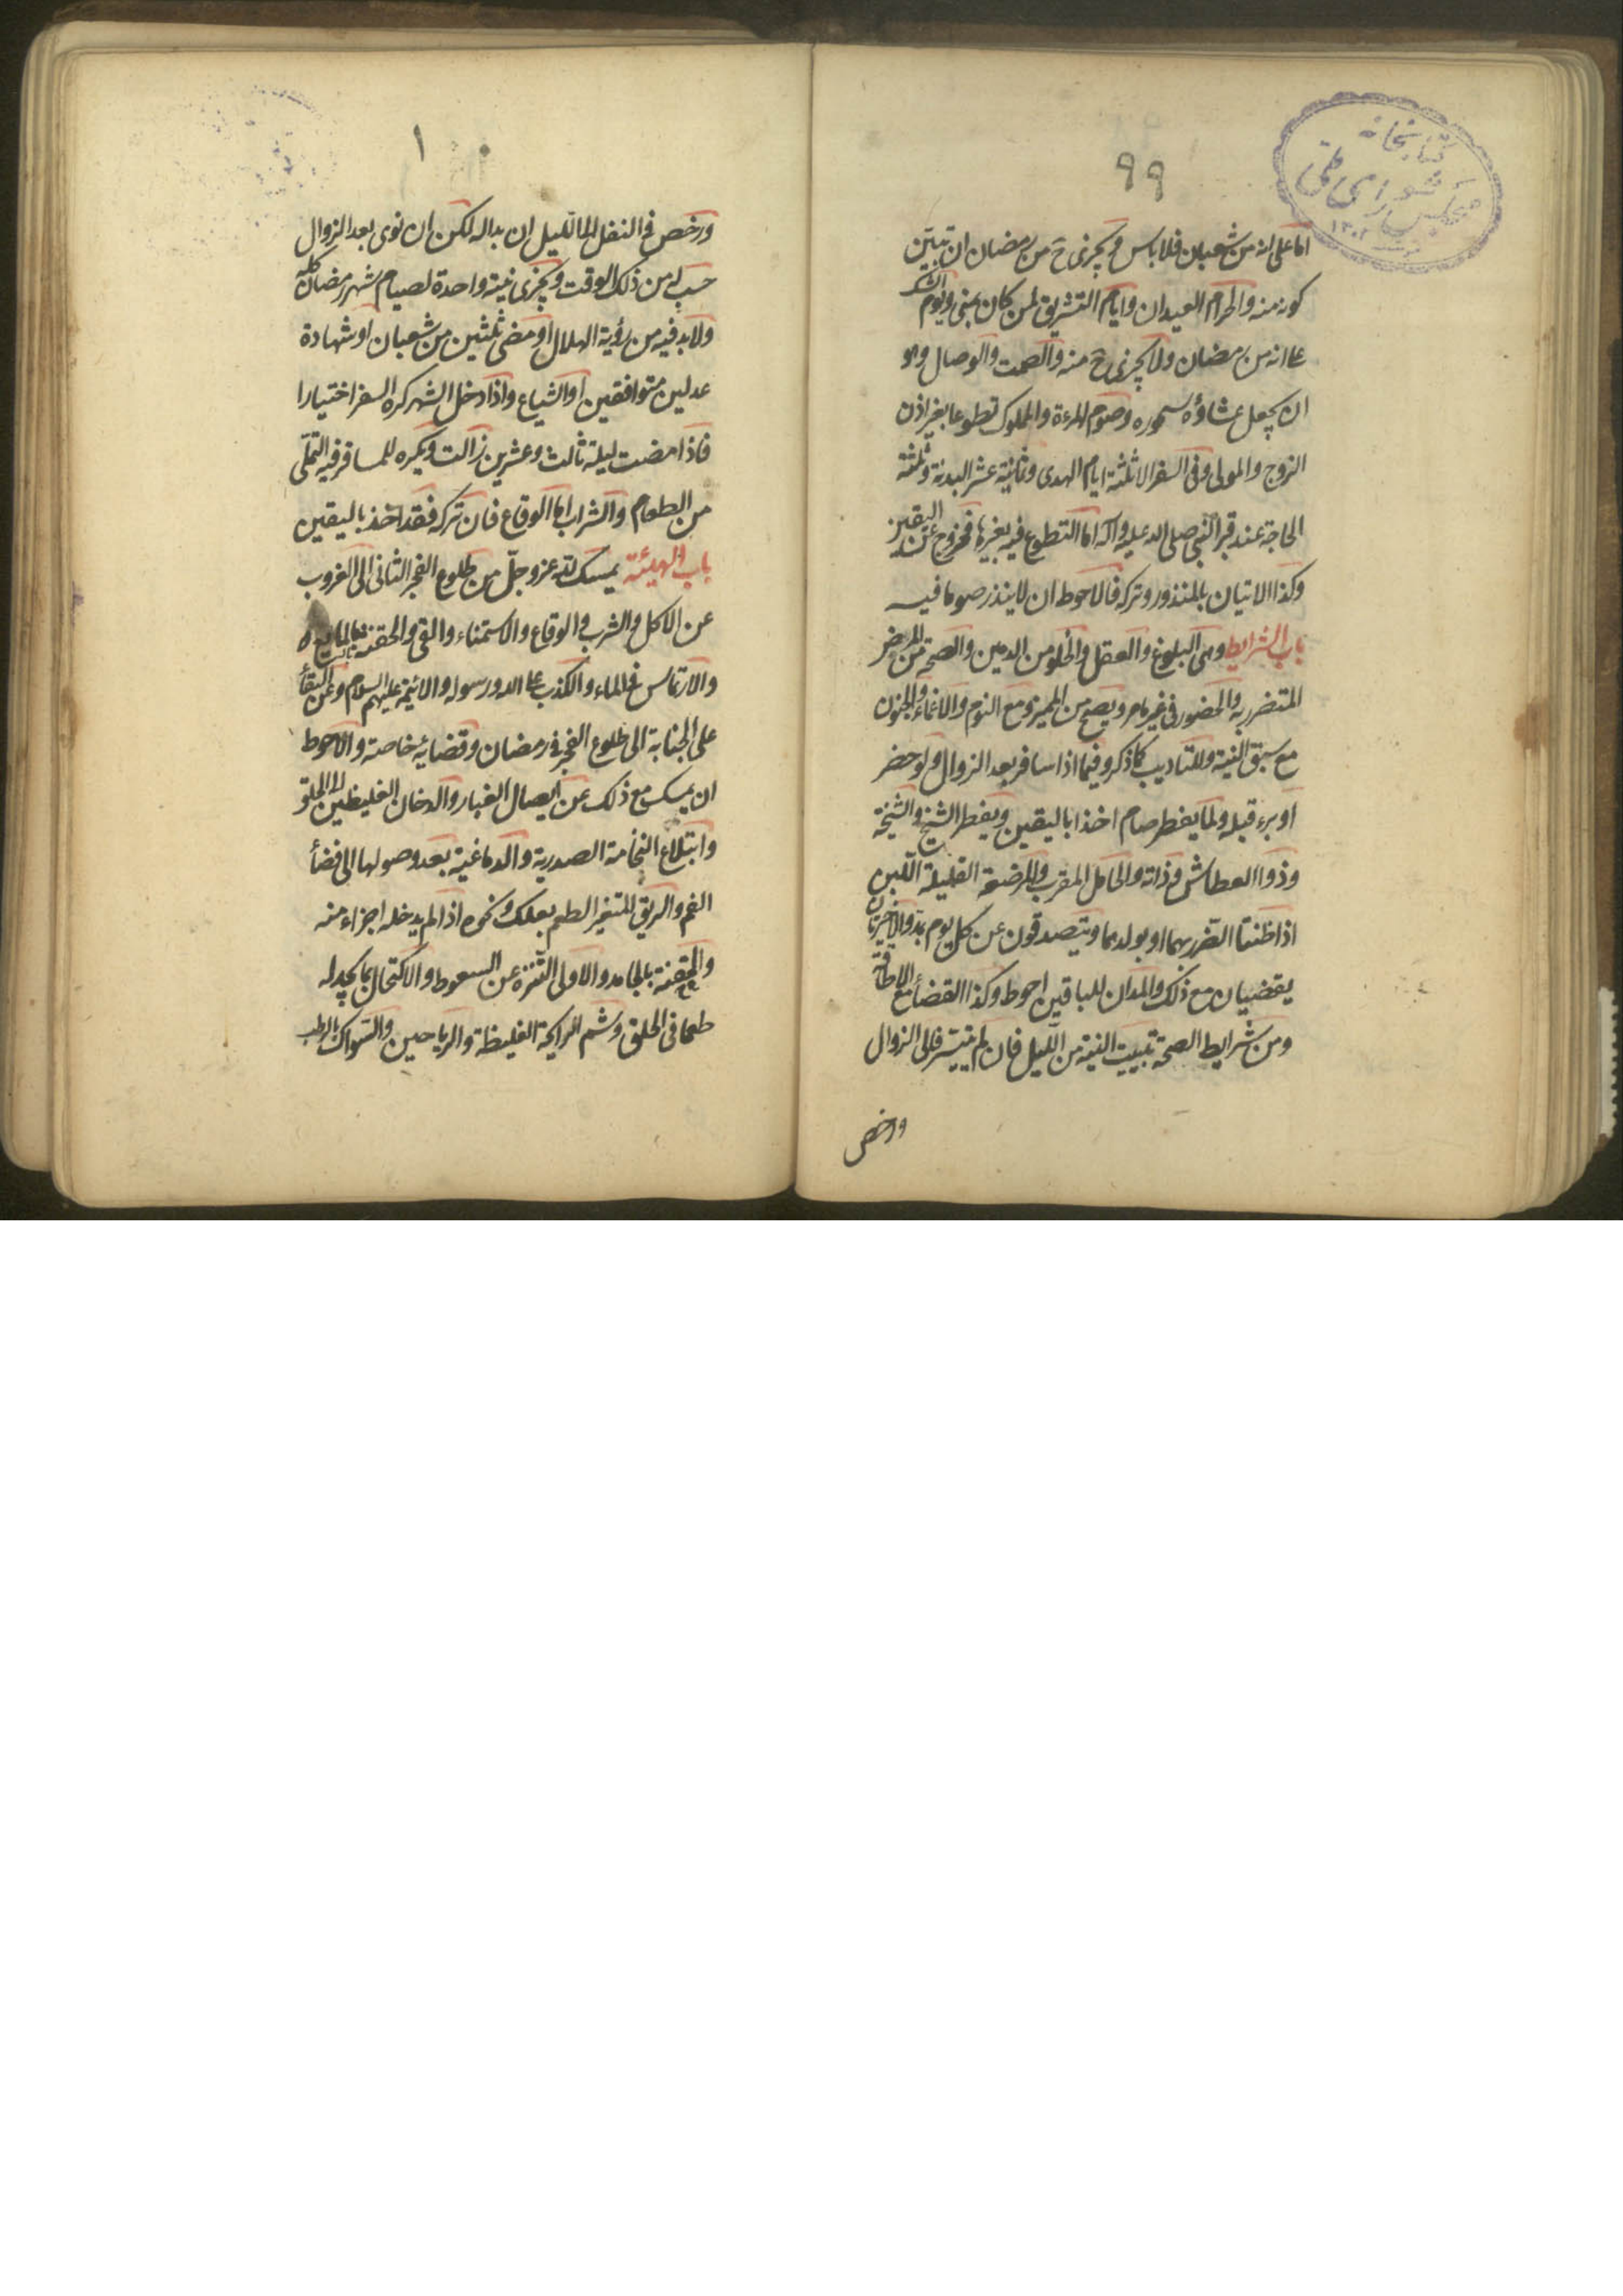 كتابخانه
مجلس شورای ملی
١٣٠٢
٩٩
اما على انه من شعبان فلا باس ويجزى ح من رمضان ان تبيّن
كونه منه والحرام العيدان وايام التشريق لمن كان بمنى ويوم الشك
على انه من رمضان ولا يجزى ح منه والصمت والوصال وهو
ان يجعل عشاؤه سحوره وصوم المرءة والمملوك تطوعا بغير اذن
الزوج والمولى وفى السفر الا ثلثة ايام الهدى وثمانية عشر البدنة وثلثة
الحاجة عند قبر النبى صلى الله عليه وآله اما التطوع فيه بغيرها فخروج عن اليقين
وكذا الاتيان بالمنذور وتركه فالاحوط ان لا ينذر صوما فيه
باب الشرايط وهى البلوغ والعقل والخلو من الدمين والصحة من المرض
المتضرر به والحضور فى غير ما مر ويصح من المميز ومع النوم والاغماء والجنون
مع سبق النية وللتاديب كما ذكر وفيما اذا سافر بعد الزوال ولو حضر
او برء قبله ولما يفطر صام اخذا باليقين ويفطر الشيخ والشيخة
وذوا العطاش وذاته والحامل المقرب والمرضعة القليلة اللبن
اذا ظنتا الضرر بهما او بولدهما ويتصدقون عن كل يوم بمد والاخيرتان
يقضيان مع ذلك والمدان للباقين احوط وكذا القضاء مع الاطاقة
ومن شرايط الصحة تبييت النية من الليل فان لم يتيسر فالى الزوال
ورخص
١٠
ورخص فى النفل الى الليل ان بدا له لكن ان نوى بعد الزوال
حسب له من ذلك الوقت ويجزى نية واحدة لصيام شهر رمضان كله
ولابد فيه من رؤية الهلال او مضى ثلثين من شعبان او شهادة
عدلين متوافقين او الشياع واذا دخل الشهر كره السفر اختيارا
فاذا مضت ليلة ثالث وعشرين زالت ويكره للمسافر فيه التملّى
من الطعام والشراب اما الوقاع فان تركه فقد اخذ باليقين
باب الهيئة يمسك لله عز وجلّ من طلوع الفجر الثانى الى الغروب
عن الاكل والشرب والوقاع والاستمناء والقئ والحقنة بالمايع
والارتماس فى الماء والكذب على الله ورسوله والائمة عليهم السلام وعن البقاء
على الجنابة الى طلوع الفجر فى رمضان وقضائه خاصة والاحوط
ان يمسك مع ذلك عن ايصال الغبار والدخان الغليظين الى الحلق
وابتلاع النخامة الصدرية والدماغية بعد وصولها الى فضاء
الفم والريق المتغير الطعم بعلك ونحوه اذا لم يدخله اجزاء منه
والحقنة بالجامد والاولى التنزه عن السعوط والاكتحال بما يجد له
طعما فى الحلق وشم الرايحة الغليظة والرياحين والسواك بالرطب